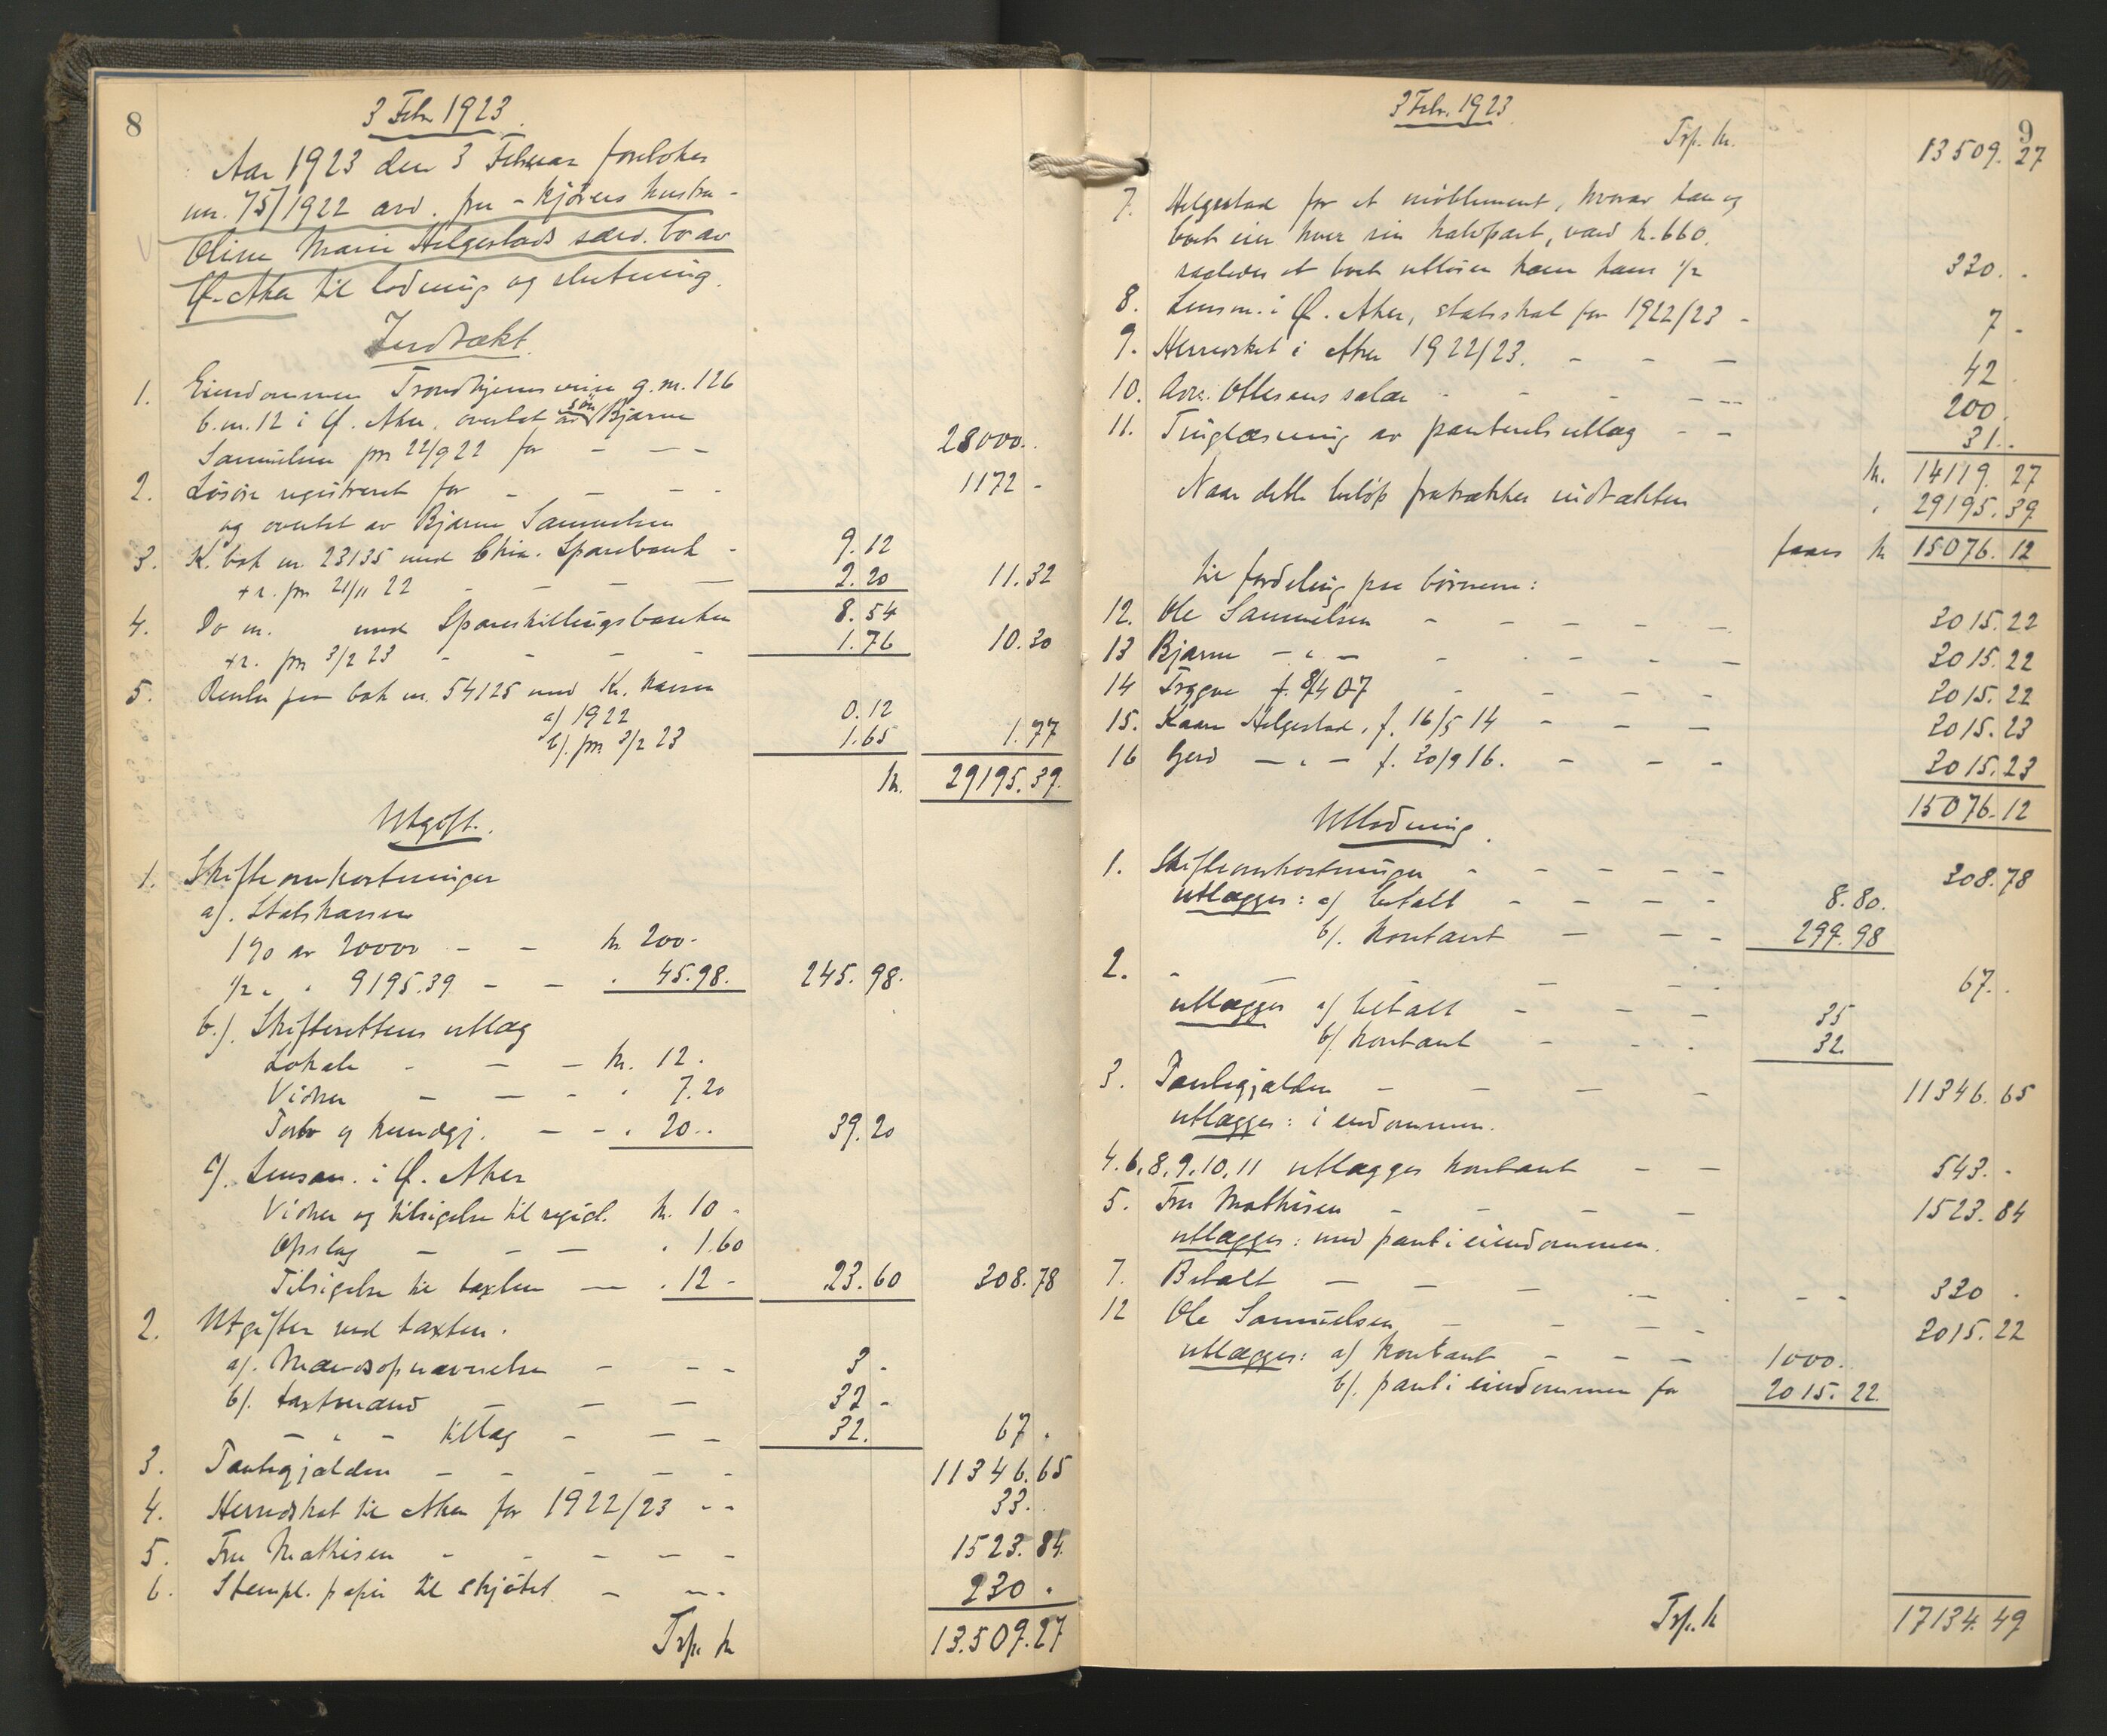 8
3 Febr 1923.
Aar 1923 den 3 Februar foretokes
nr. 75/1922 avd. fru - kjörers hustru -
Oline Marie Helgestads særd. bo av
Ø. Aker til lodning og slutning.
Indtækt.
1. Eiendommen Trondhjemsveien g.nr. 126
b.nr. 12 i Ø. Aker, overtat av sön Bjarne
Samuelsen pr 22/9 22 for - - - 28000.
2. Lösöre registreret for - - - - 1172 -
og overtat av Bjarne Samuelsen
3. K. bok nr. 23135 med Chra. Sparebank - 9.12
+ r. pr 21/11 22 - - - - 2.20 11.32
4. Do nr. med Spareskillingsbanken 8.54
+ r. pr 3/2 23 - - - - 1.76 10.30
5. Renter paa bok nr. 54125 med Kr. kassen
a) 1922 0.12
b). pr 3/2 23 1.65 1.77
kr. 29195.39.
Utgift.
1. Skifteomkostninger
a). Statskassen
1% av 20000 - - kr 200.-
1/2 " " 9195.39 - - " 45.98. 245.98.
b.). Skifterettens utlæg
Lokale - - - kr. 12.
Vidner - - - " 7.20
Porto og kundgj. - - " 20.. 39.20
c). Lensm. i Ø. Aker
Vidner og tilsigelse til regist. kr. 10 -
Opslag - - - " 1.60
Tilsigelse til taxten - " 12 - 23.60 308.78
2. Utgifter ved taxten.
a). Mændsopnævnelse - - - 3 -
b). taxtmænd - - - 32 -
- " - tillæg - - - 32. 67.
3. Pantegjælden - - - - - 11346.65
4. Herredskat til Aker for 1922/23 - - 33.
5. Fru Mathisen - - - - - 1523.84.
6. Stempl. papir til skjötet - - - 230.
Trsp. kr 13.509.27
9
3 Febr. 1923.
Trsp. kr. 13509.27
7. Helgestad for et möblement, hvorav han og
boet eier hver sin halvpart, værd kr. 660.
saaledes at boet utlöser ham hans 1/2 330. -
8. Lensm. i Ø. Aker, statsskat for 1922/23 - 7 -
9. Herredskat i Aker 1922/23. - - - 42.
10. Adv. Ottesens salær - - - - - 200.
11. Tinglæsning av panteutlæg - - 31..
kr. 14119.27
Naar dette belöp fratrækkes indtækten " 29195.39
faaes kr 15076.12
til fordeling paa börnene:
12. Ole Samuelsen - - - - - 3015.22
13 Bjarne - " - - - - - 3015.22
14 Trygve f. 8/4 07 - - - - 3015.22
15. Kaare Helgestad, f. 16/5 14 - - - 3015.23
16 Gerd - " - f. 20/9 16. - - - 3015.23
15076.12
Utlodning.
1. Skifteomkostninger - - - - - 308.78
utlægges: a) betalt - - - - 8.80.
b). kontant - - - 299.98
2. - - - - 67..
utlægges a) betalt - - - 35
b). kontant - - - 32.
3. Pantegjælden - - - - 11346.65
utlægges: i eiendommen.
4.6,8,9,10,11 utlægges kontant - - 543. -
5. Fru Mathisen - - - - 1523.84
utlægges: med pant i eiendommen.
7. Betalt - - - - - - 330.
12 Ole Samuelsen - - - - 3015.22
utlægges: a) kontant - - - 1000.
b). pant i eiendommen for 2015.22
Trsp. kr 17134.49